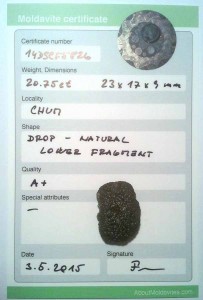 Moldavite certificate
Certificate number
Weight, Dimensions
20.75ct 23x17x9 mm
Locality
CHUM
Shape
DROP - NATURAL
LOWER FRAGMENT
Quality
A+
Special attributes
—
Date
Signature
3.5.2015
AboutMoldavites.com